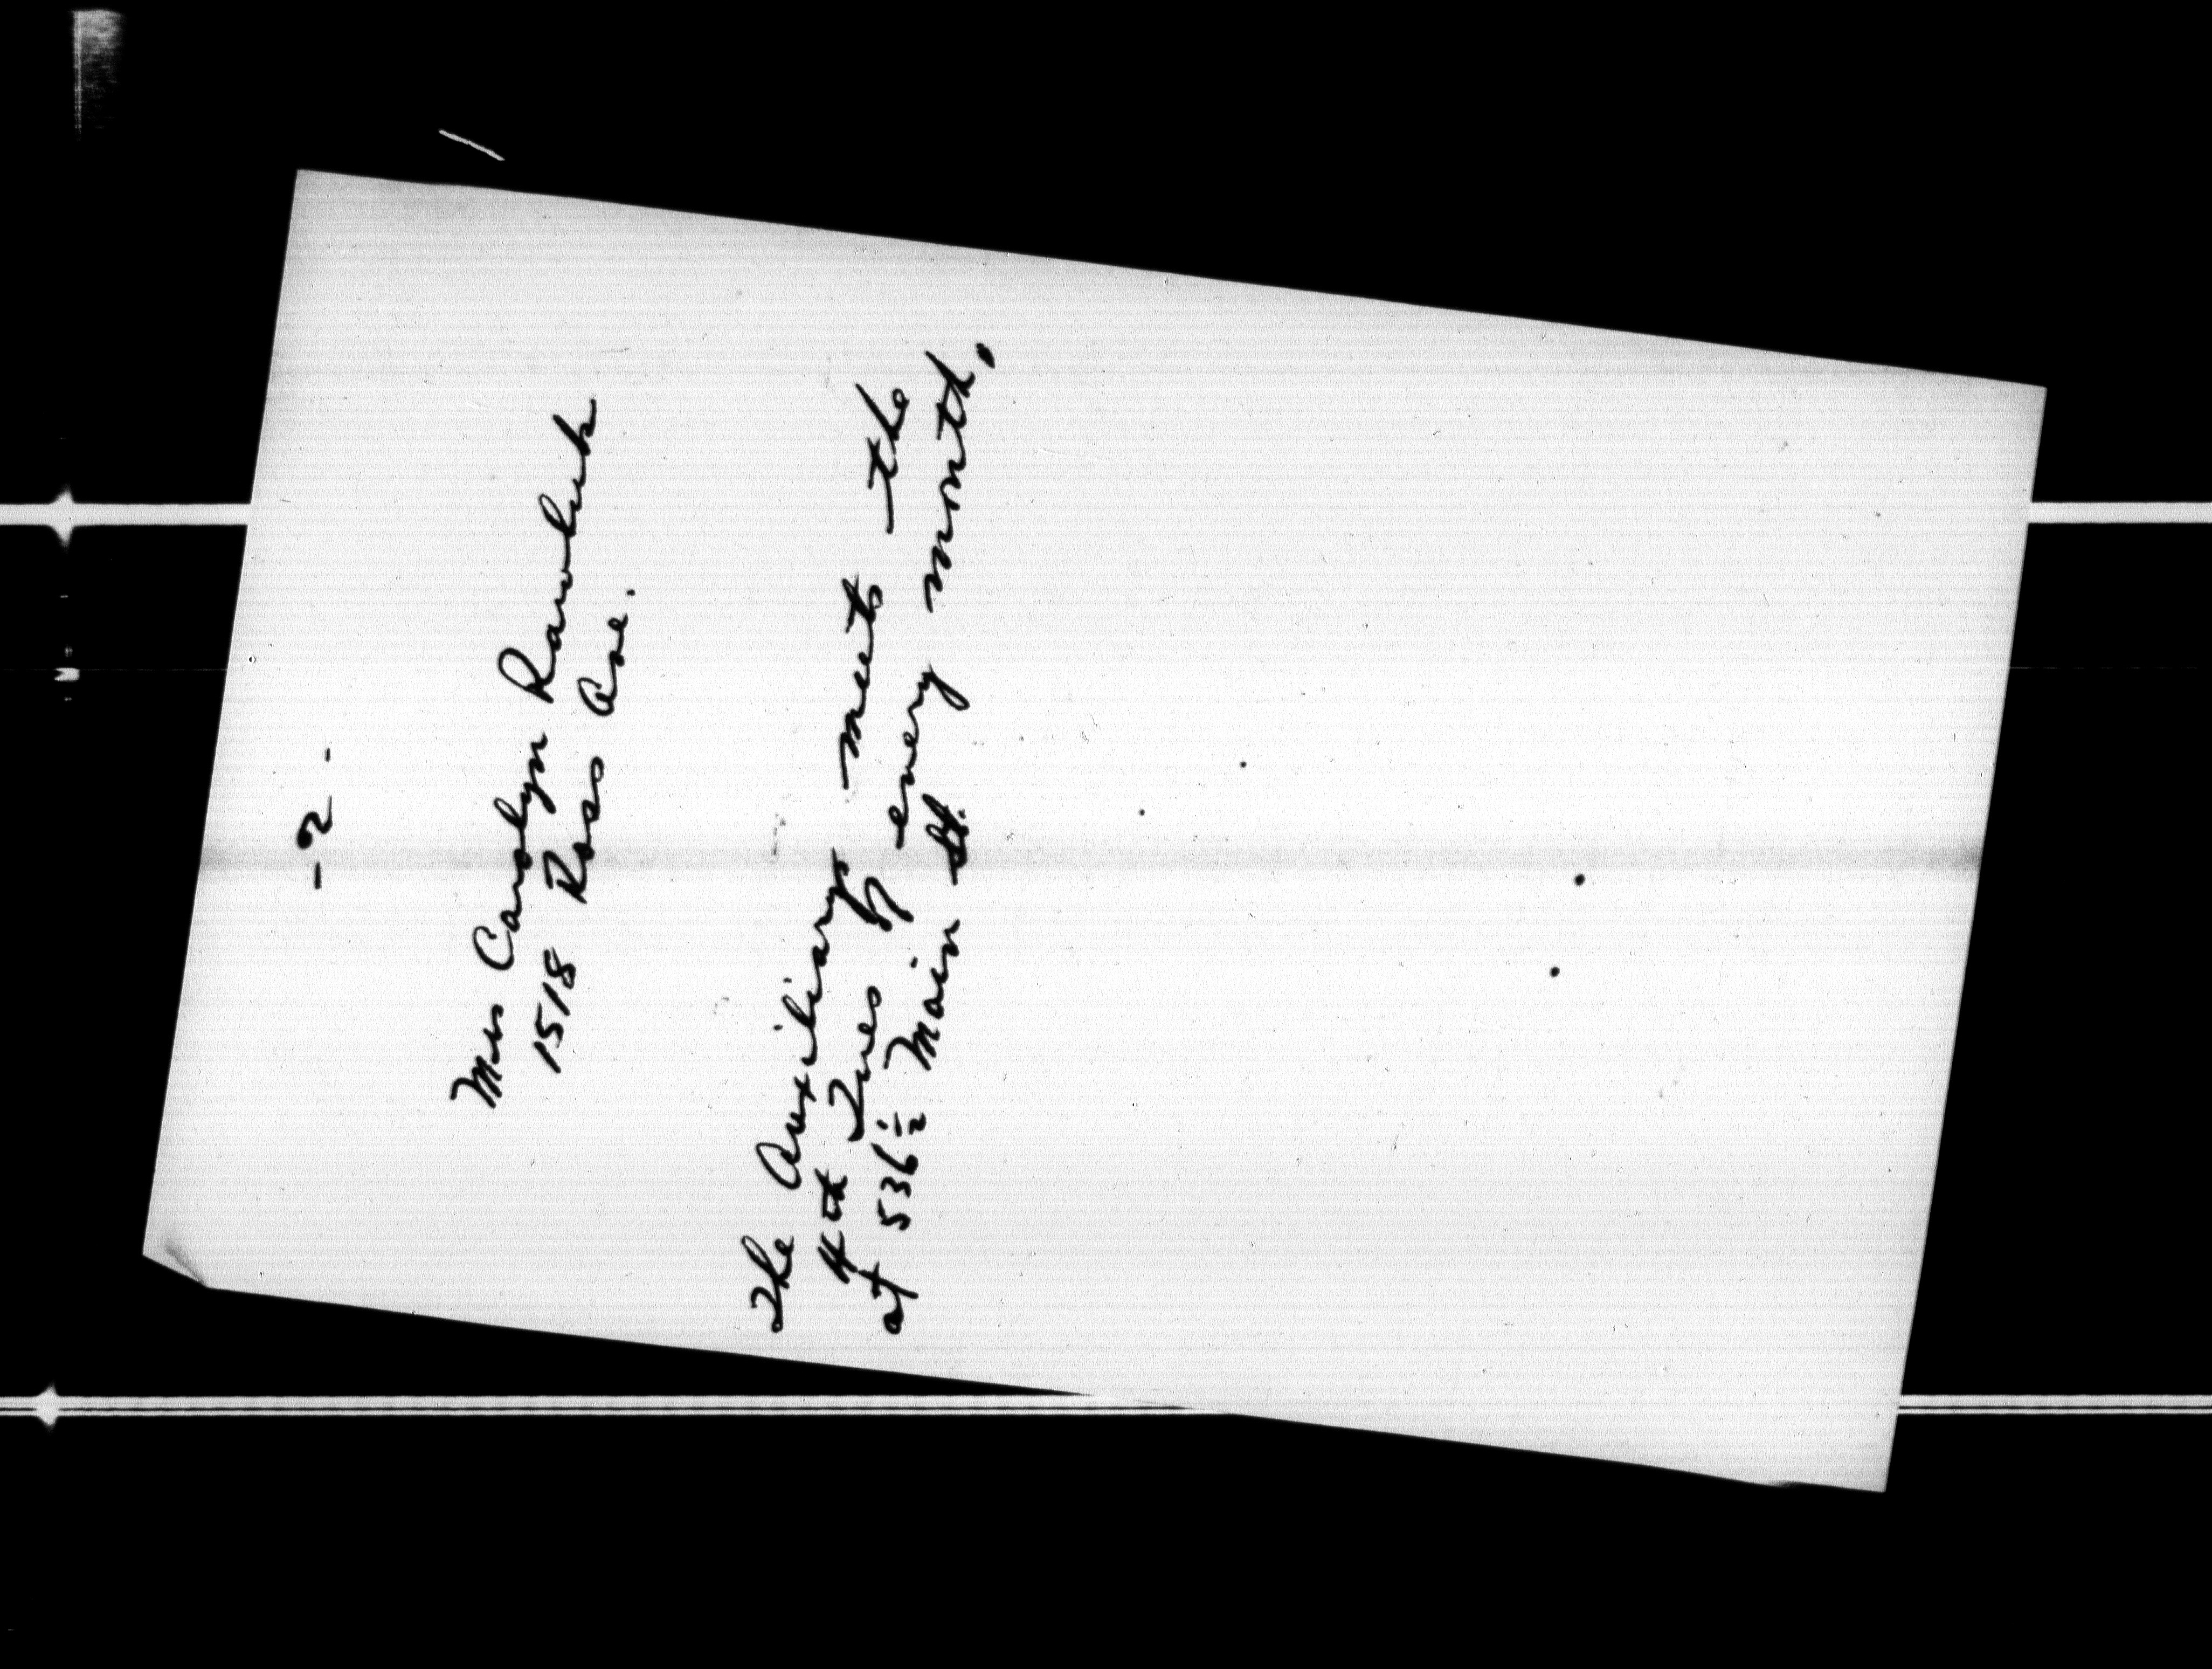 - 2 -
Mrs Carolyn Rawluk
1518 Ross Ave.
The Auxiliary meets the
4th Tues of every month.
at 536½ Main St.